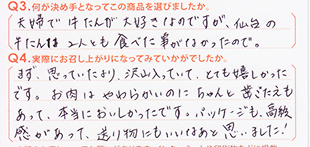 Q3.何が決め手となってこの商品を選びましたか。
夫婦で牛たんが大好きなのですが、仙台の
牛たんは2人とも食べた事がなかったので。
Q4.実際にお召し上がりになってみていかがでしたか。
まず、思っていたより、沢山入っていて、とても嬉しかった
です。お肉はやわらかいのにちゃんと歯ごたえも
あって、本当においしかったです。パッケージも、高級
感があって、送り物にもいいなあと思いました!